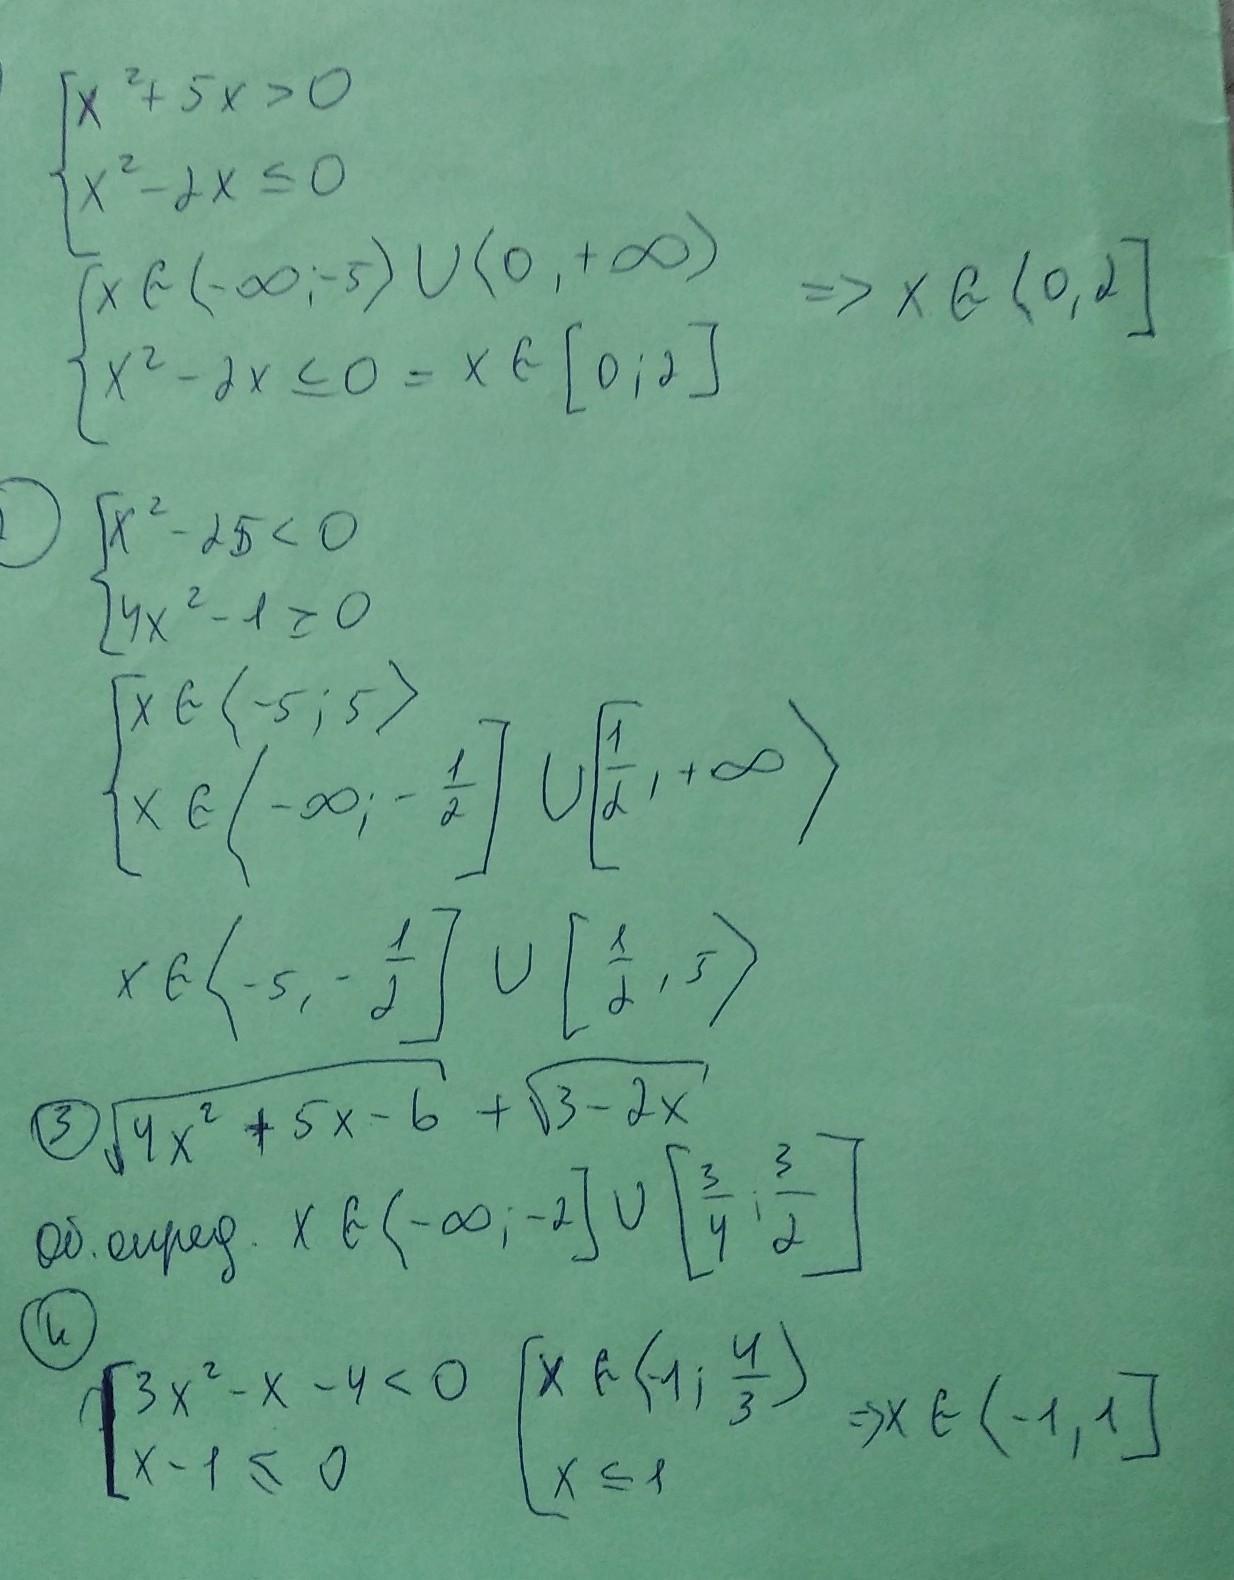 x² + 5x > 0
x² - 2x ≤ 0
x ∈ (-∞; -5) ∪ (0, +∞) => x ∈ (0, 2]
x² - 2x ≤ 0 = x ∈ [0; 2]
x² - 25 < 0
4x² - 1 ≥ 0
x ∈ (-5; 5)
x ∈ (-∞; -1/2] ∪ [1/2, +∞)
x ∈ (-5, -1/2] ∪ [1/2, 5)
③ √(4x² + 5x - 6) + √(3 - 2x)
Об. опред. x ∈ (-∞; -2] ∪ [3/4; 3/2]
④
3x² - x - 4 < 0 x ∈ (-1; 4/3) => x ∈ (-1, 1]
x - 1 ≤ 0 x ≤ 1